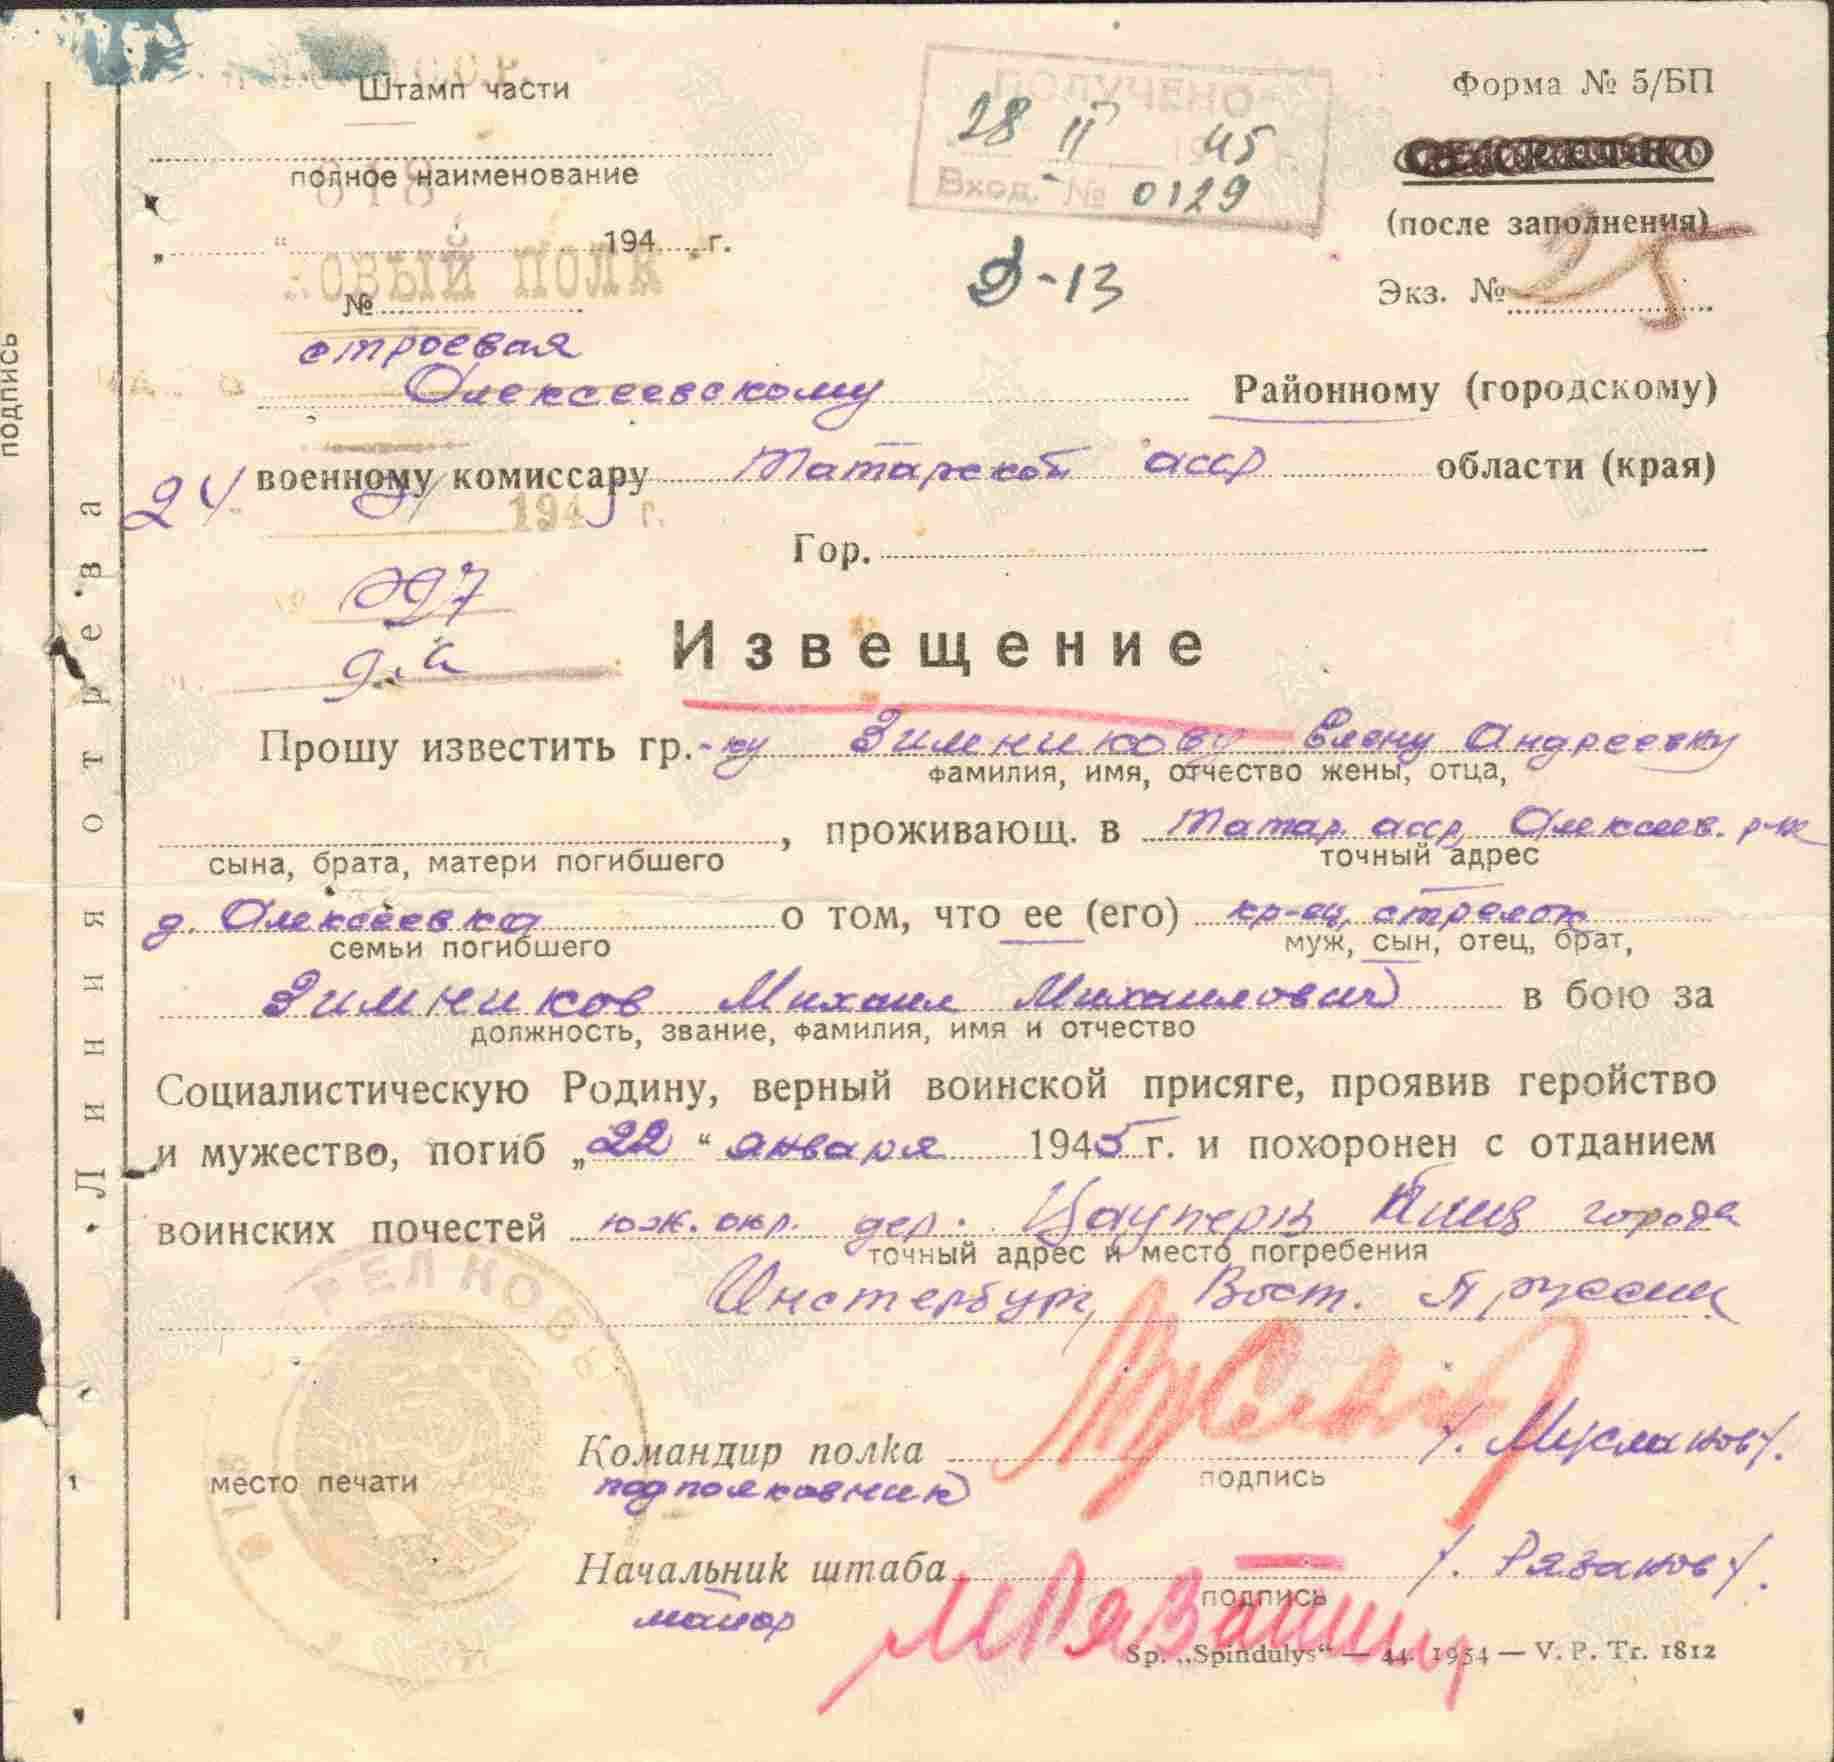 Штамп части
полное наименование
„ “ 194 г.
№
848
овый полк
ПОЛУЧЕНО
28 II 1945
Вход. № 0129
Д-13
Форма № 5/БП
(после заполнения)
Экз. № 25
строевая
Алексеевскому Районному (городскому)
военному комиссару Татарской асср области (края)
24 194 г.
Гор.
097
Извещение
Прошу известить гр.-ку Зимникову Елену Андреевку
фамилия, имя, отчество жены, отца,
, проживающ. в Татар. асср, Алексеев. р-не
сына, брата, матери погибшего точный адрес
д. Алексеевка о том, что ее (его) кр-ец, стрелок
семьи погибшего муж, сын, отец, брат,
Зимников Михаил Михаилович в бою за
должность, звание, фамилия, имя и отчество
Социалистическую Родину, верный воинской присяге, проявив геройство
и мужество, погиб „22“ января 1945 г. и похоронен с отданием
воинских почестей юж. окр. дер. Цауперн близ города
точный адрес и место погребения
Инстербург, Вост. Пруссии
Командир полка /. Мусланов /.
подполковник подпись
место печати
Начальник штаба /. Рязанов /.
майор подпись
Sp. „Spindulys“ — 44. 1954 — V. P. Tr. 1812
Линия отреза
подпись